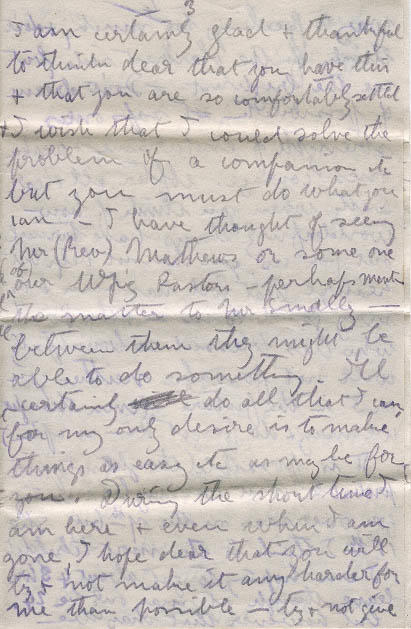 3
I am certainly glad + thankful
to think dear that you have this
+ that you are so comfortably settled
+ I wish that I could solve the
problem of a companion etc
but you must do what you
can – I have thought of seeing
Mr (Rev) Mathews or some one
of our Wpg Pastors – perhaps mention
the matter to Mr Smalley –
between them they might be
able to do something. I'll
certainly do all that I can
for my only desire is to make
things as easy etc as may be for
you. During the short time I
am here + even when I am
gone, I hope dear that you will
try + not make it any harder for
me than possible – try + not give